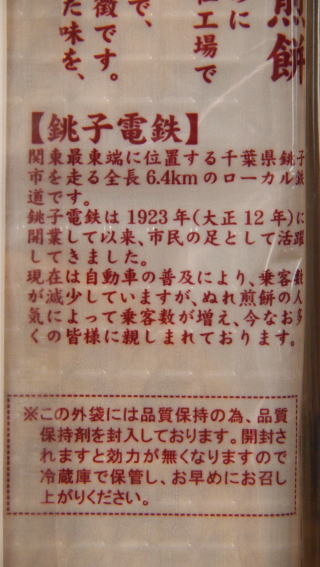 煎餅
めに
社工場で
で、
徴です。
た味を、
【銚子電鉄】
関東最東端に位置する千葉県銚子
市を走る全長6.4kmのローカル鉄
道です。
銚子電鉄は1923年(大正12年)に
開業して以来、市民の足として活躍
してきました。
現在は自動車の普及により、乗客数
が減少していますが、ぬれ煎餅の人
気によって乗客数が増え、今なお多
くの皆様に親しまれております。
※この外袋には品質保持の為、品質
保持剤を封入しております。開封さ
れますと効力が無くなりますので
冷蔵庫で保管し、お早めにお召し
上がりください。